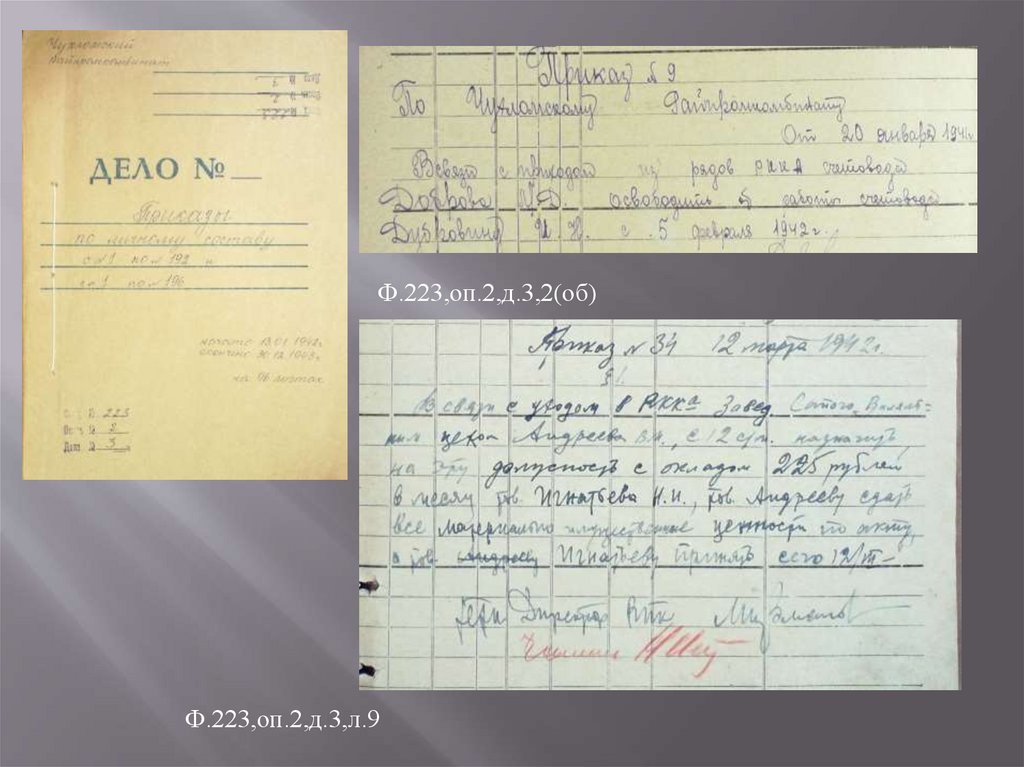 Чухломский
Райпромкомбинат
ДЕЛО №
Приказы
по личному составу
с №1 по № 192 и
с №1 по № 196
начато 13.01.1942г.
окончено 30.12.1943г.
на 96 листах
№ 223
Оп. № 2
Дело № 3
Приказ № 9
По Чухломскому Райпромкомбинату
От 20 января 1942г.
Всвязи с приходом из рядов РККА счетовода
Доброва И.Д. освободить от работы счетовода
Дубровину И.Н. с 5 февраля 1942г.
Ф.223,оп.2,д.3,2(об)
Приказ № 34 12 марта 1942г.
§1.
В связи с уходом в РККА Завед.
цехом Андреева В.П., с 12 с/м. назначить
на эту должность с окладом 225 рублей
в месяц тов. Игнатьева Н.И., тов. Андрееву сдать
все материально имущественные ценности по акту,
а тов. Андрееву Игнатьеву принять сего 12/III-
Директор РПК
Ф.223,оп.2,д.3,л.9